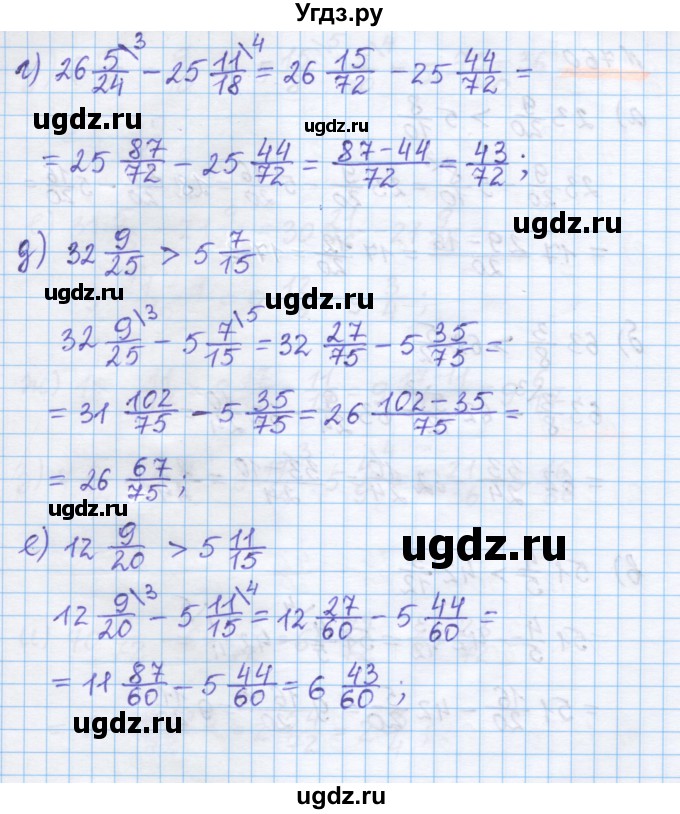 Угдз.ру
г) 26 5/24 \3 − 25 11/18 \4 = 26 15/72 − 25 44/72 =
ugdz.ru ugdz.ru
= 25 87/72 − 25 44/72 = (87−44)/72 = 43/72 ;
ugdz.ru
д) 32 9/25 > 5 7/15
ugdz.ru ugdz.ru
32 9/25 \3 − 5 7/15 \5 = 32 27/75 − 5 35/75 =
= 31 102/75 − 5 35/75 = 26 (102−35)/75 =
= 26 67/75 ;
ugdz.ru
е) 12 9/20 > 5 11/15
ugdz.ru
12 9/20 \3 − 5 11/15 \4 = 12 27/60 − 5 44/60 =
= 11 87/60 − 5 44/60 = 6 43/60 ;
ugdz.ru ugdz.ru
ugdz.ru